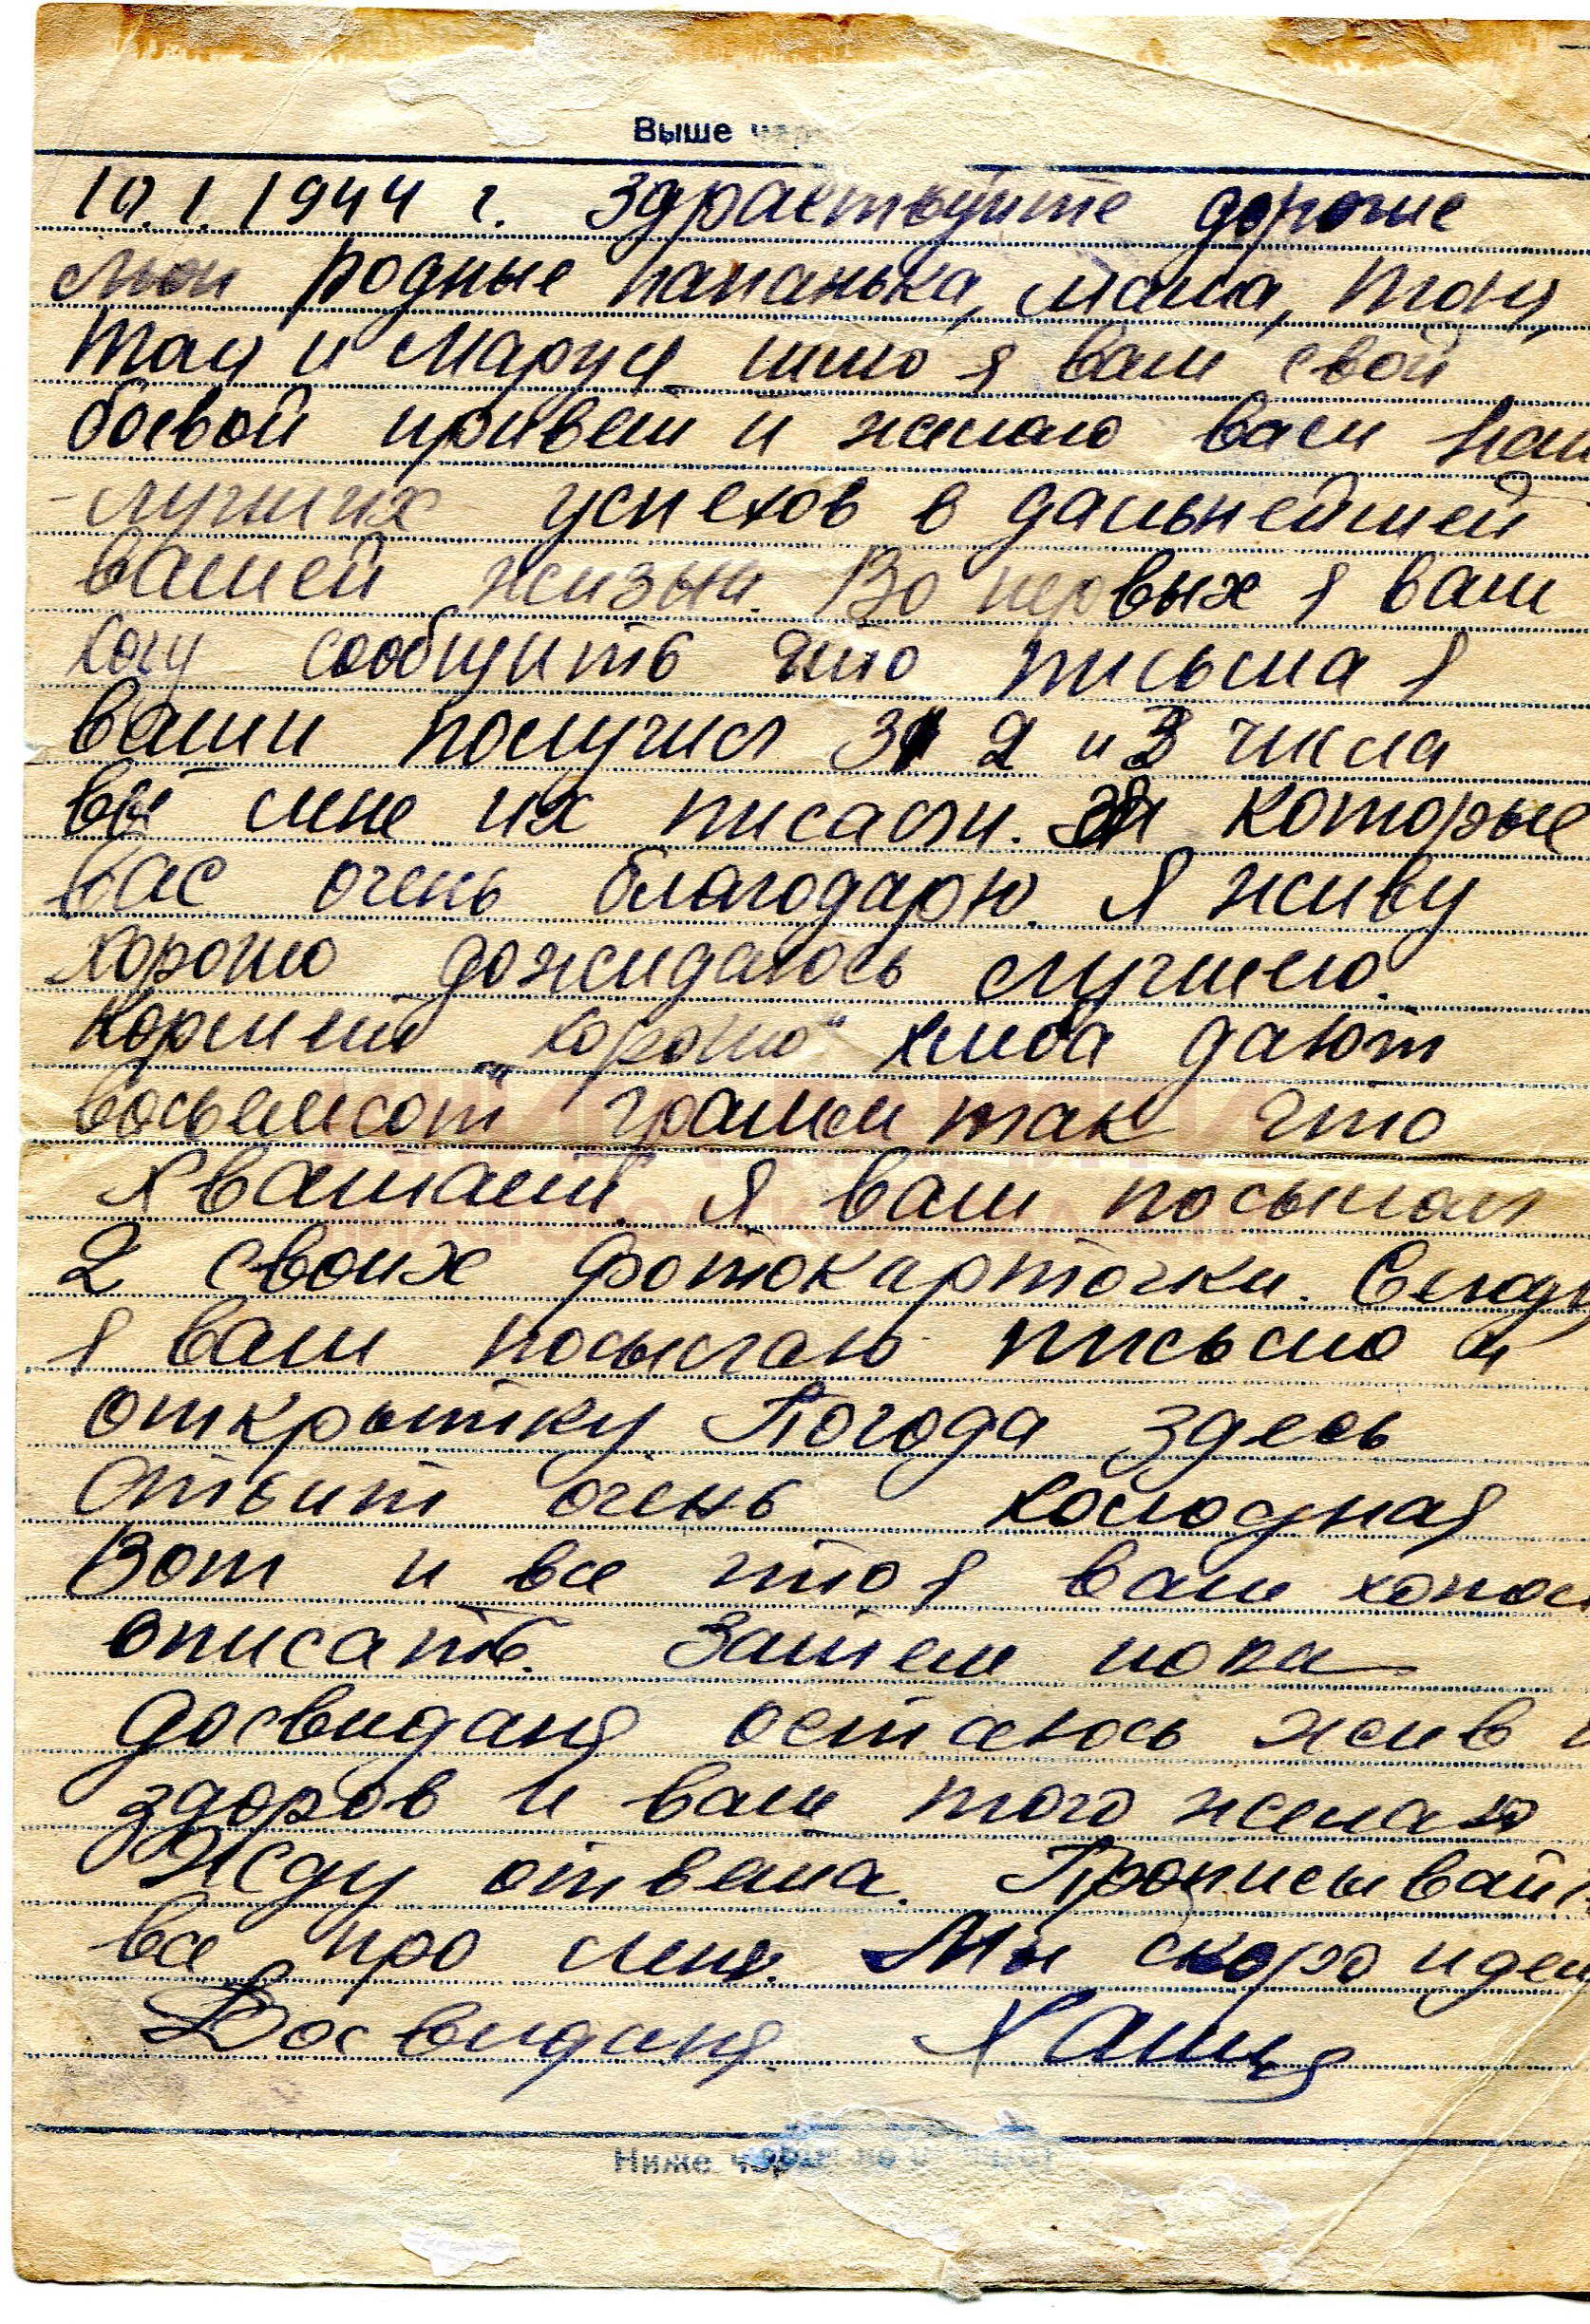 Выше чер
10.1.1944 г. Здраствуйте дорогие
мои родные папанька, мама, Тоня,
Тая и Маруся шлю я вам свой
боевой привет и желаю вам наи
-лучших успехов в дальнейшей
вашей жизни. Во первых я вам
хочу сообщить что письма я
ваши получил 31 2 и 3 числа
вы мне их писали. За которые
вас очень благодарю. Я живу
хорошо дожидаюсь лучшего.
Кормят „хорошо" хлеба дают
"восемьсот" грамм так что
хватает. Я вам посылал
2 своих фотокарточки. Сегодн
я вам посылаю письмо и
открытку Погода здесь
стоит очень холодная
Вот и все что я вам хотел
описать. Затем пока
досвиданя остаюсь жив и
здоров и вам того желаю
Жду ответа. Прописывайт
все про меня. Мы скоро идем
Досвиданя.
КНИГА ПАМЯТИ
НИЖЕГОРОДСКОЙ ОБЛАСТИ
Ниже чер